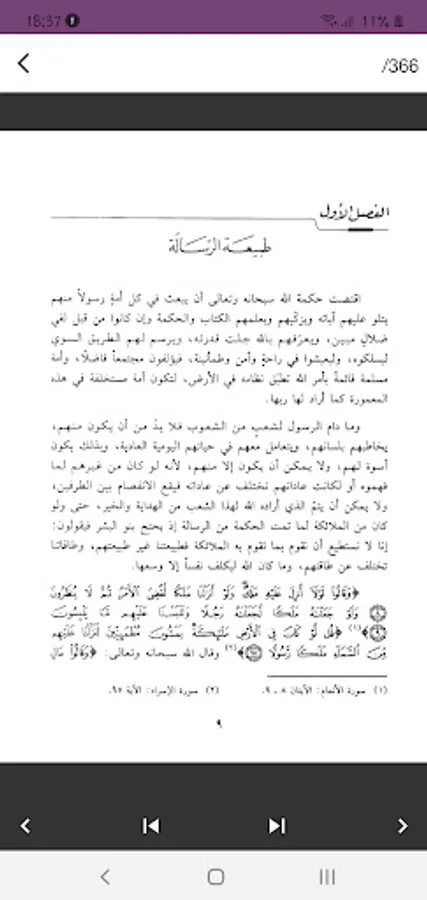 18:37
11%
/366
الفصل الأول
طبيعة الرسالة
اقتضت حكمة الله سبحانه وتعالى أن يبعث في كل أمةٍ رسولاً منهم
يتلو عليهم آياته ويزكّيهم ويعلمهم الكتاب والحكمة وإن كانوا من قبل لفي
ضلالٍ مبين، ويعرّفهم بالله جلت قدرته، ويرسم لهم الطريق السوي
ليسلكوه، وليعيشوا في راحةٍ وأمن وطمأنينة، فيؤلفون مجتمعاً فاضلًا، وأمة
مسلمة قائمةً بأمر الله تطبّق نظامه في الأرض، لتكون أمة مستخلفة في هذه
المعمورة كما أراد لها ربها.
وما دام الرسول لشعبٍ من الشعوب فلا بدّ من أن يكون منهم،
يخاطبهم بلسانهم، ويتعامل معهم في حياتهم اليومية العادية، وبذلك يكون
أسوة لهم، ولا يمكن أن يكون إلا منهم، لأنه لو كان من غيرهم لما
فهموه أو لكانت عاداتهم تختلف عن عاداته فيقع الانفصام بين الطرفين،
ولا يمكن أن يتمّ الذي أراده الله لهذا الشعب من الهداية والخير، حتى ولو
كان من الملائكة لما تمت الحكمة من الرسالة إذ يحتج بنو البشر فيقولون:
إنا لا نستطيع أن نقوم بما تقوم به الملائكة فطبيعتنا غير طبيعتهم، وطاقاتنا
تختلف عن طاقتهم، وما كان الله ليكلف نفساً إلا وسعها.
﴿وَقَالُوا لَوْلَا أُنزِلَ عَلَيْهِ مَلَكٌ وَلَوْ أَنزَلْنَا مَلَكًا لَّقُضِيَ الْأَمْرُ ثُمَّ لَا يُنظَرُونَ
وَلَوْ جَعَلْنَاهُ مَلَكًا لَّجَعَلْنَاهُ رَجُلًا وَلَلَبَسْنَا عَلَيْهِم مَّا يَلْبِسُونَ
﴾(١) ﴿قُل لَّوْ كَانَ فِي الْأَرْضِ مَلَائِكَةٌ يَمْشُونَ مُطْمَئِنِّينَ لَنَزَّلْنَا عَلَيْهِم
مِّنَ السَّمَاءِ مَلَكًا رَّسُولًا﴾(٢) وقال الله سبحانه وتعالى: ﴿وَقَالُوا مَالِ
(١) سورة الأنعام: الآيتان ٨ - ٩. (٢) سورة الإسراء: الآية ٩٥.
٩